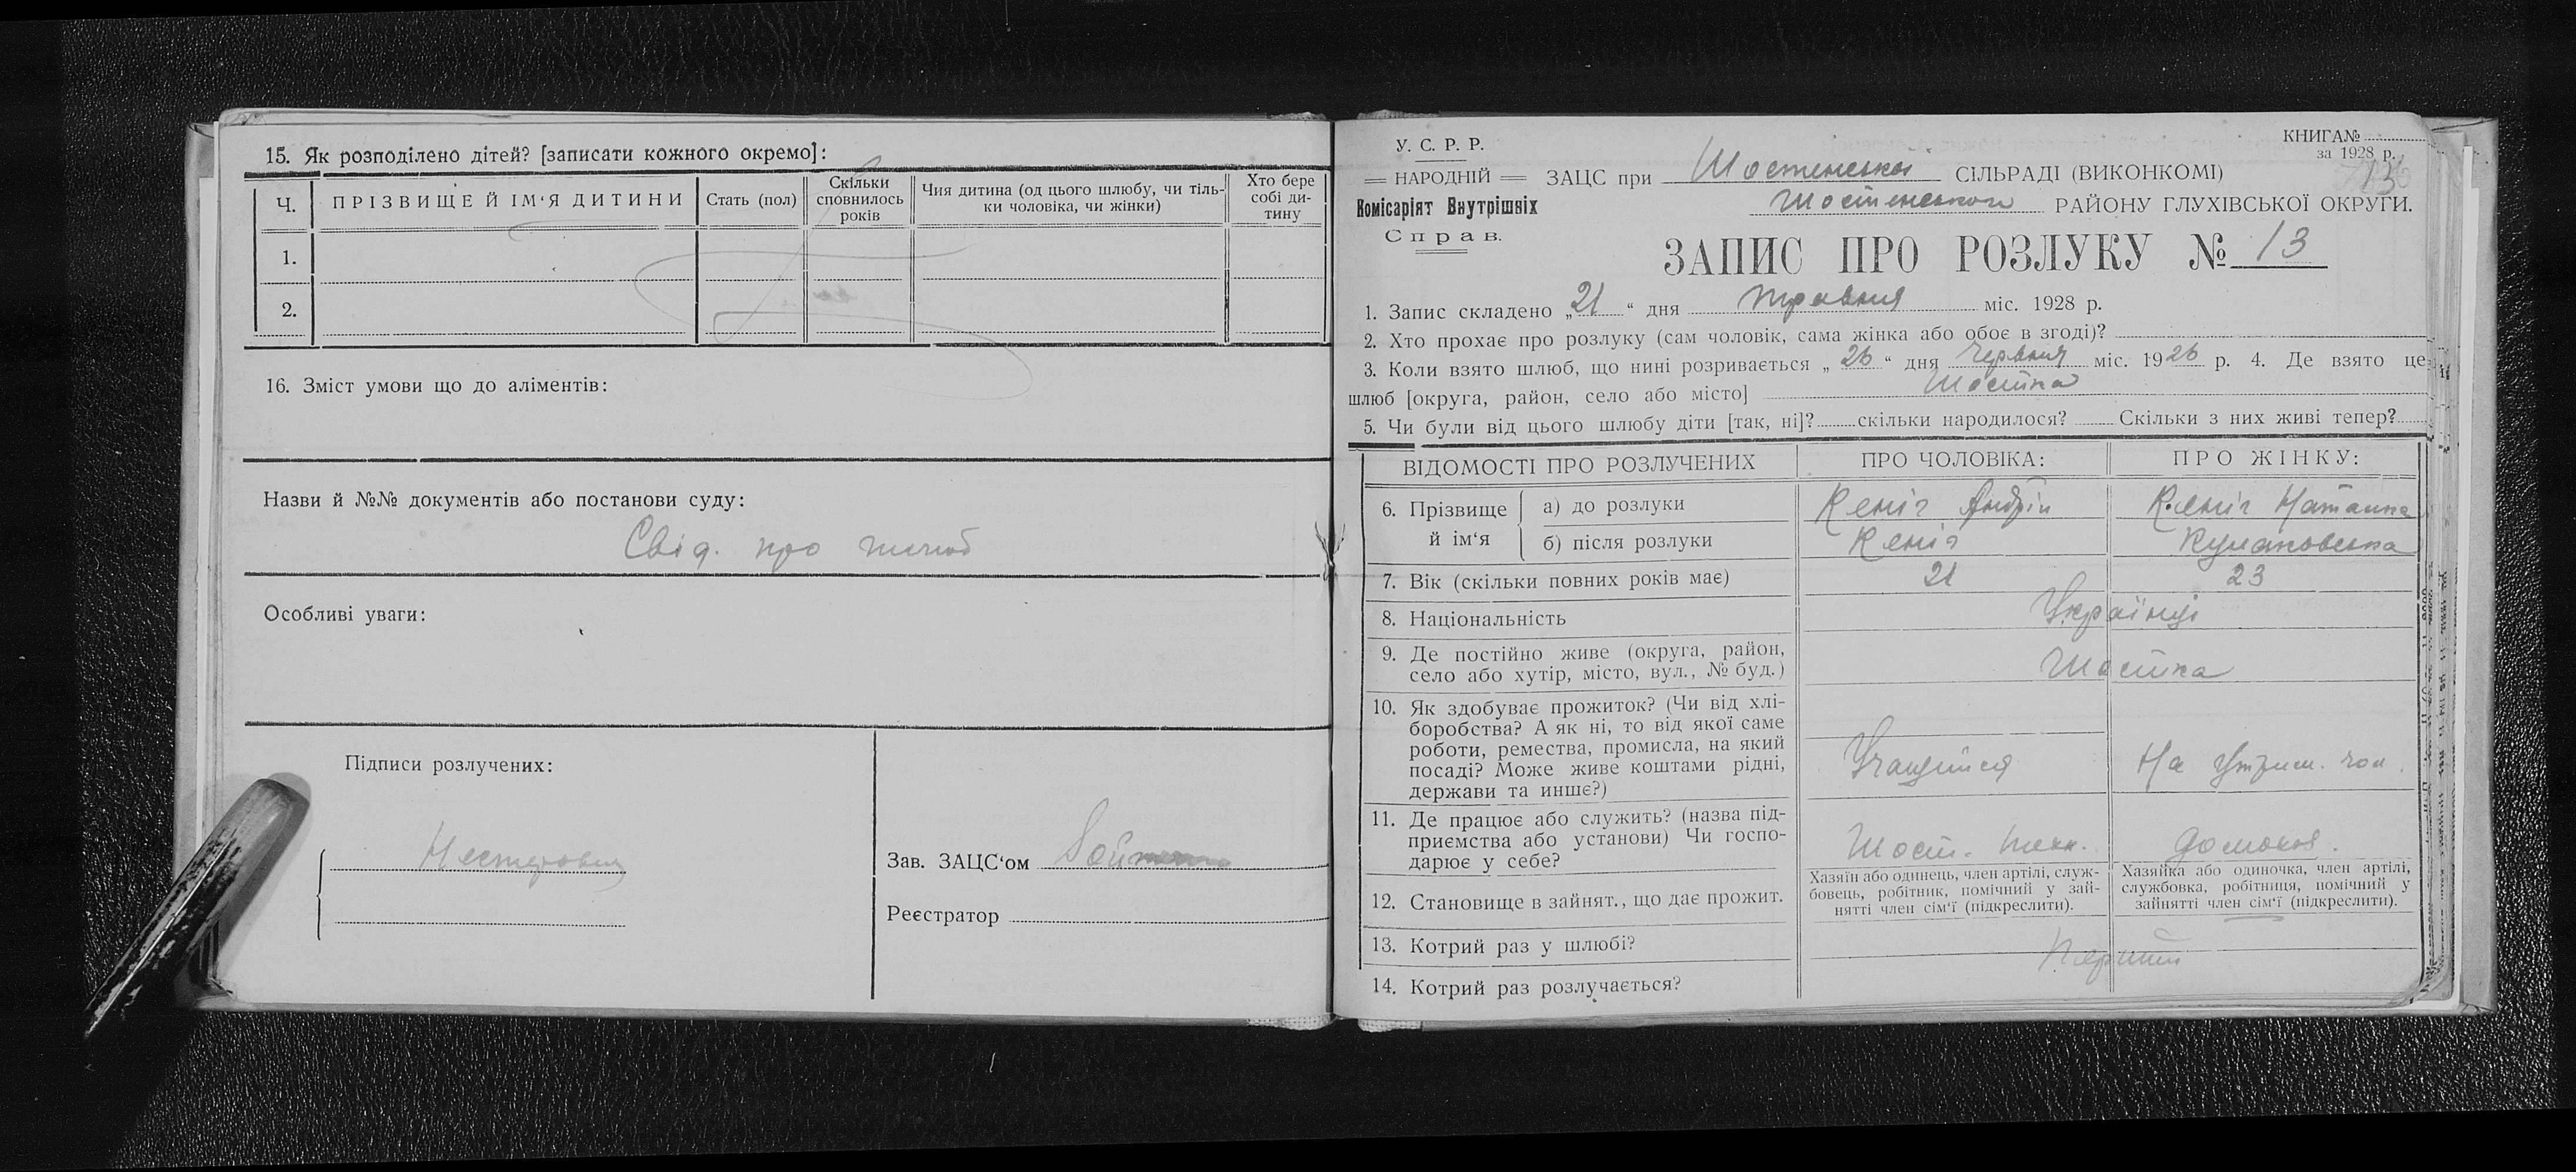 15. Як розподілено дітей? [записати кожного окремо]:
Ч.
ПРІЗВИЩЕ Й ІМ‘Я ДИТИНИ
Стать (пол)
Скільки
сповнилось
років
Чия дитина (од цього шлюбу, чи тіль-
ки чоловіка, чи жінки)
Хто бере
собі ди-
тину
1.
2.
16. Зміст умови що до аліментів:
Назви й №№ документів або постанови суду:
Свід. про шлюб
Особливі уваги:
Підписи розлучених:
Зав. ЗАЦС‘ом
Реєстратор
У. С. Р. Р.
НАРОДНІЙ
Комісаріят Внутрішніх
Справ.
КНИГА№
за 1928 р.
13
ЗАЦС при Шостенській СІЛЬРАДІ (ВИКОНКОМІ)
Шостенського РАЙОНУ ГЛУХІВСЬКОЇ ОКРУГИ.
ЗАПИС ПРО РОЗЛУКУ № 13
1. Запис складено „21“ дня травня міс. 1928 р.
2. Хто прохає про розлуку (сам чоловік, сама жінка або обоє в згоді)?
3. Коли взято шлюб, що нині розривається „26“ дня червня міс. 1926 р. 4. Де взято це
шлюб [округа, район, село або місто] Шостка
5. Чи були від цього шлюбу діти [так, ні]? скільки народилося? Скільки з них живі тепер?
ВІДОМОСТІ ПРО РОЗЛУЧЕНИХ
ПРО ЧОЛОВІКА:
ПРО ЖІНКУ:
6. Прізвище й ім‘я
а) до розлуки
Кеніг Андрій
Кеніг Наталка
б) після розлуки
Кеніг
7. Вік (скільки повних років має)
21
23
8. Національність
Українці
9. Де постійно живе (округа, район,
село або хутір, місто, вул., № буд.)
Шостка
10. Як здобуває прожиток? (Чи від хлі-
боробства? А як ні, то від якої саме
роботи, ремества, промисла, на який
посаді? Може живе коштами рідні,
держави та инше?)
Учащийся
На утрим. чол.
11. Де працює або служить? (назва під-
приємства або установи) Чи госпо-
дарює у себе?
Шост. техн.
домохоз.
12. Становище в зайнят., що дає прожит.
Хазяїн або одинець, член артілі, служ-
бовець, робітник, помічний у зай-
нятті член сім‘ї (підкреслити).
Хазяйка або одиночка, член артілі,
службовка, робітниця, помічний у
зайнятті член сім‘ї (підкреслити).
13. Котрий раз у шлюбі?
Перший
14. Котрий раз розлучається?